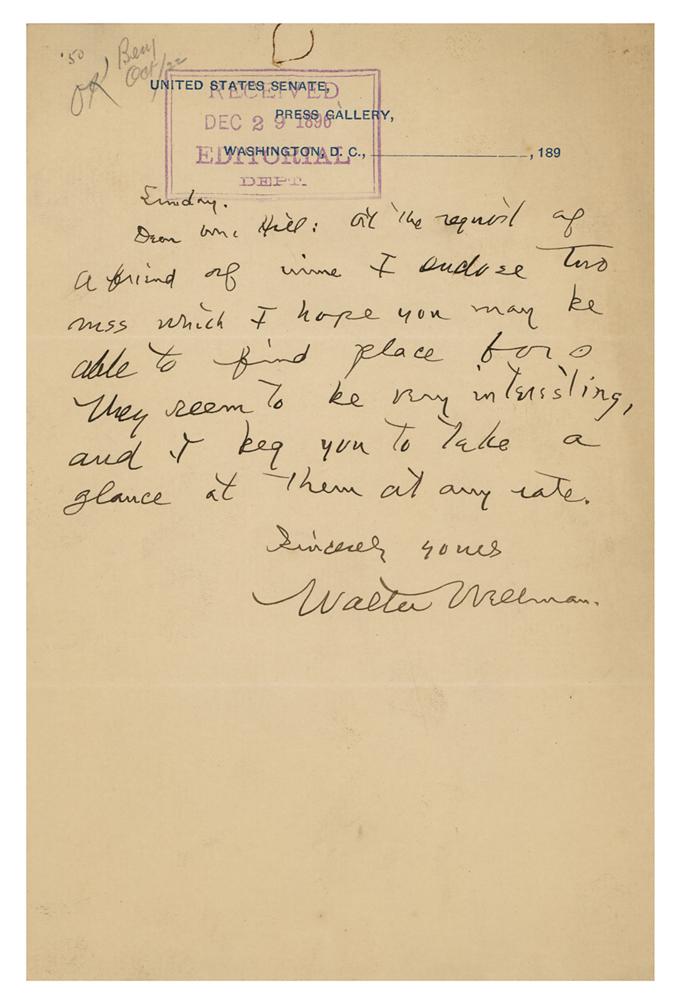 '50
OK Benj
Oct/22
UNITED STATES SENATE,
PRESS GALLERY,
WASHINGTON, D. C., , 189
RECEIVED
DEC 29 1896
EDITORIAL
DEPT.
Sunday.
Dear Mr. Hill: At the request of
a friend of mine I enclose two
mss which I hope you may be
able to find place for.
They seem to be very interesting,
and I beg you to take a
glance at them at any rate.
Sincerely yours
Walter Wellman.